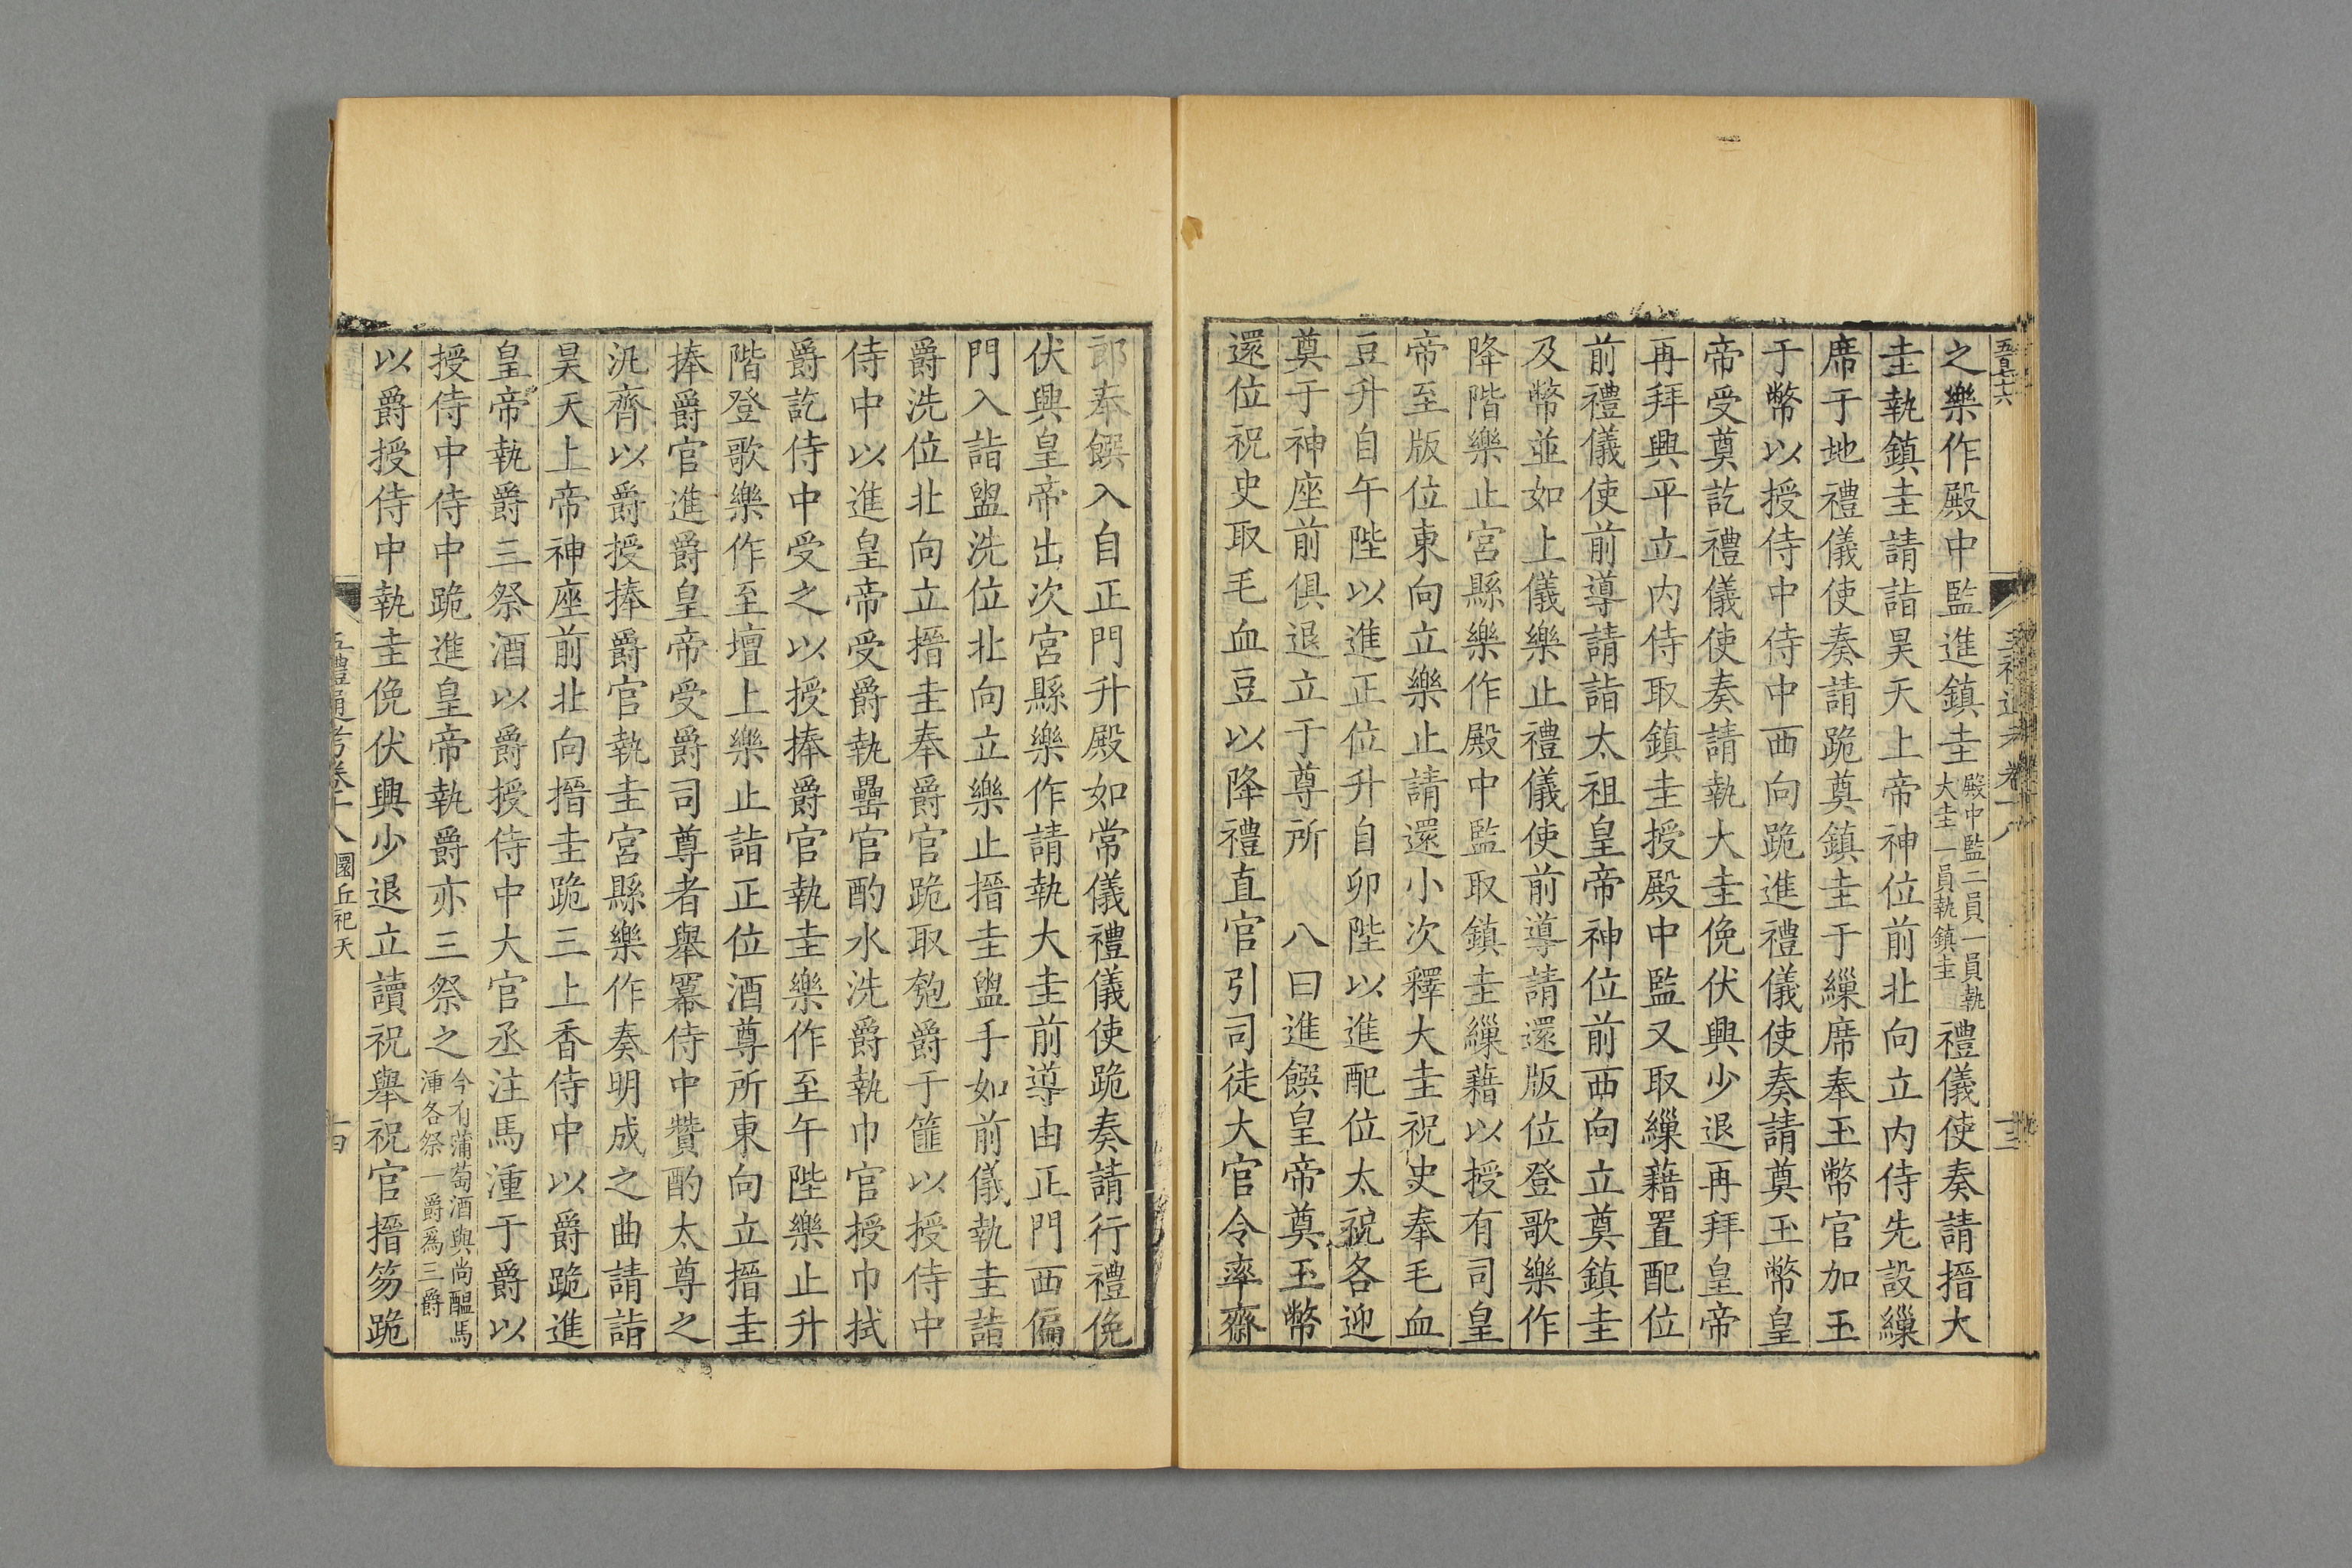 之樂作殿中監進鎮圭殿中監二員一員執大圭一員執鎮圭禮儀使奏請搢大
圭執鎮圭請詣昊天上帝神位前北向立内侍先設繅
席于地禮儀使奏請跪奠鎮圭于繅席奉玉幣官加玉
于幣以授侍中侍中西向跪進禮儀使奏請奠玉幣皇
帝受奠訖禮儀使奏請執大圭俛伏興少退再拜皇帝
再拜興平立内侍取鎮圭授殿中監又取繅藉置配位
前禮儀使前導請詣太祖皇帝神位前西向立奠鎮圭
及幣並如上儀樂止禮儀使前導請還版位登歌樂作
降階樂止宮縣樂作殿中監取鎮圭繅藉以授有司皇
帝至版位東向立樂止請還小次釋大圭祝史奉毛血
豆升自午陛以進正位升自卯陛以進配位太祝各迎
奠于神座前俱退立于尊所 八曰進饌皇帝奠玉幣
還位祝史取毛血豆以降禮直官引司徒大官令率齋
郎奉饌入自正門升殿如常儀禮儀使跪奏請行禮俛
伏興皇帝出次宮縣樂作請執大圭前導由正門西偏
門入詣盥洗位北向立樂止搢圭盥手如前儀執圭詣
爵洗位北向立搢圭奉爵官跪取匏爵于篚以授侍中
侍中以進皇帝受爵執罍官酌水洗爵執巾官授巾拭
爵訖侍中受之以授捧爵官執圭樂作至午陛樂止升
階登歌樂作至壇上樂止詣正位酒尊所東向立搢圭
捧爵官進爵皇帝受爵司尊者舉羃侍中贊酌太尊之
汎齊以爵授捧爵官執圭宮縣樂作奏明成之曲請詣
昊天上帝神座前北向搢圭跪三上香侍中以爵跪進
皇帝執爵三祭酒以爵授侍中大官丞注馬湩于爵以
授侍中侍中跪進皇帝執爵亦三祭之今有蒲萄酒與尚醞馬湩各祭一爵為三爵
以爵授侍中執圭俛伏興少退立讀祝舉祝官搢笏跪
五禮通考卷十八 圜丘祀天